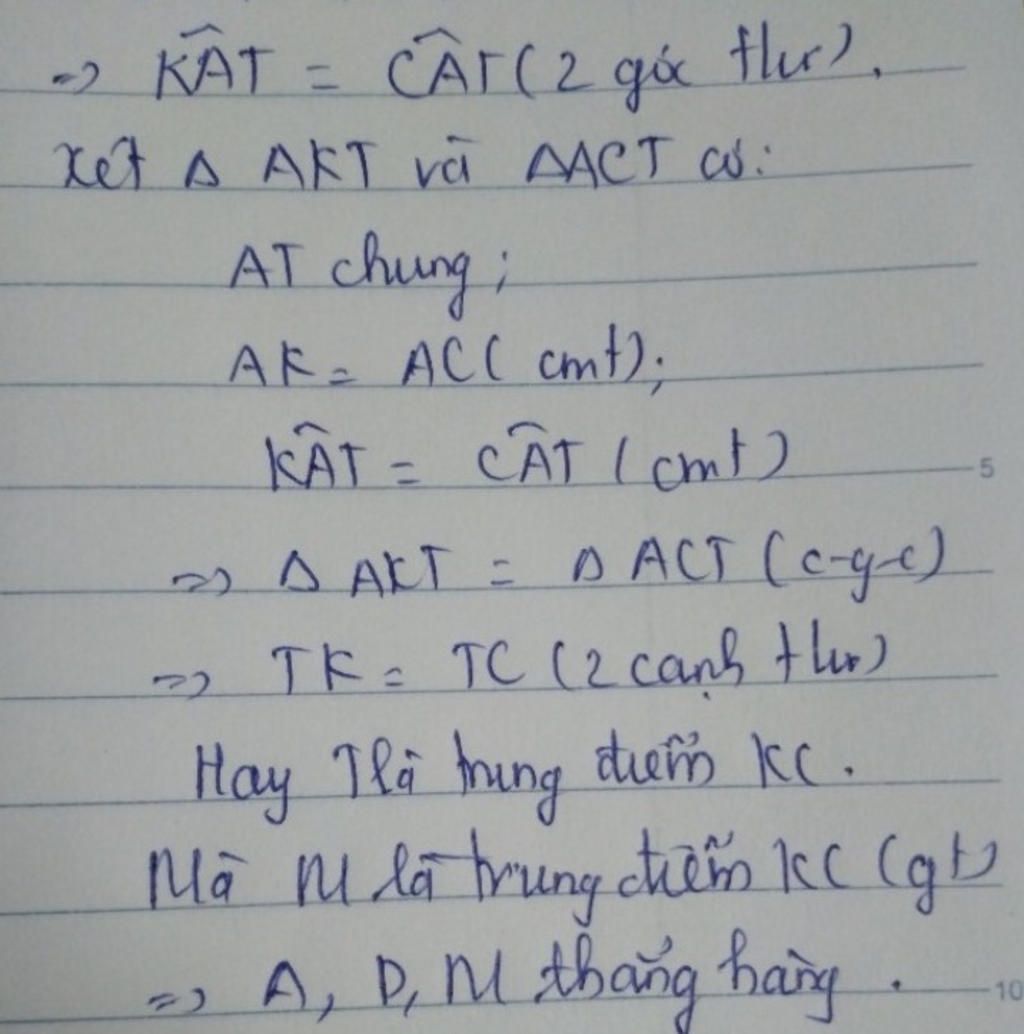 => K̂AT = ĈAT (2 góc tlư).
Xét Δ AKT và ΔACT có:
AT chung;
AK = AC (cmt);
K̂AT = ĈAT (cmt)
5
=> Δ AKT = Δ ACT (c-g-c)
=> TK = TC (2 cạnh tlư)
Hay T là trung điểm KC.
Mà M là trung điểm KC (gt)
=> A, D, M thẳng hàng.
10